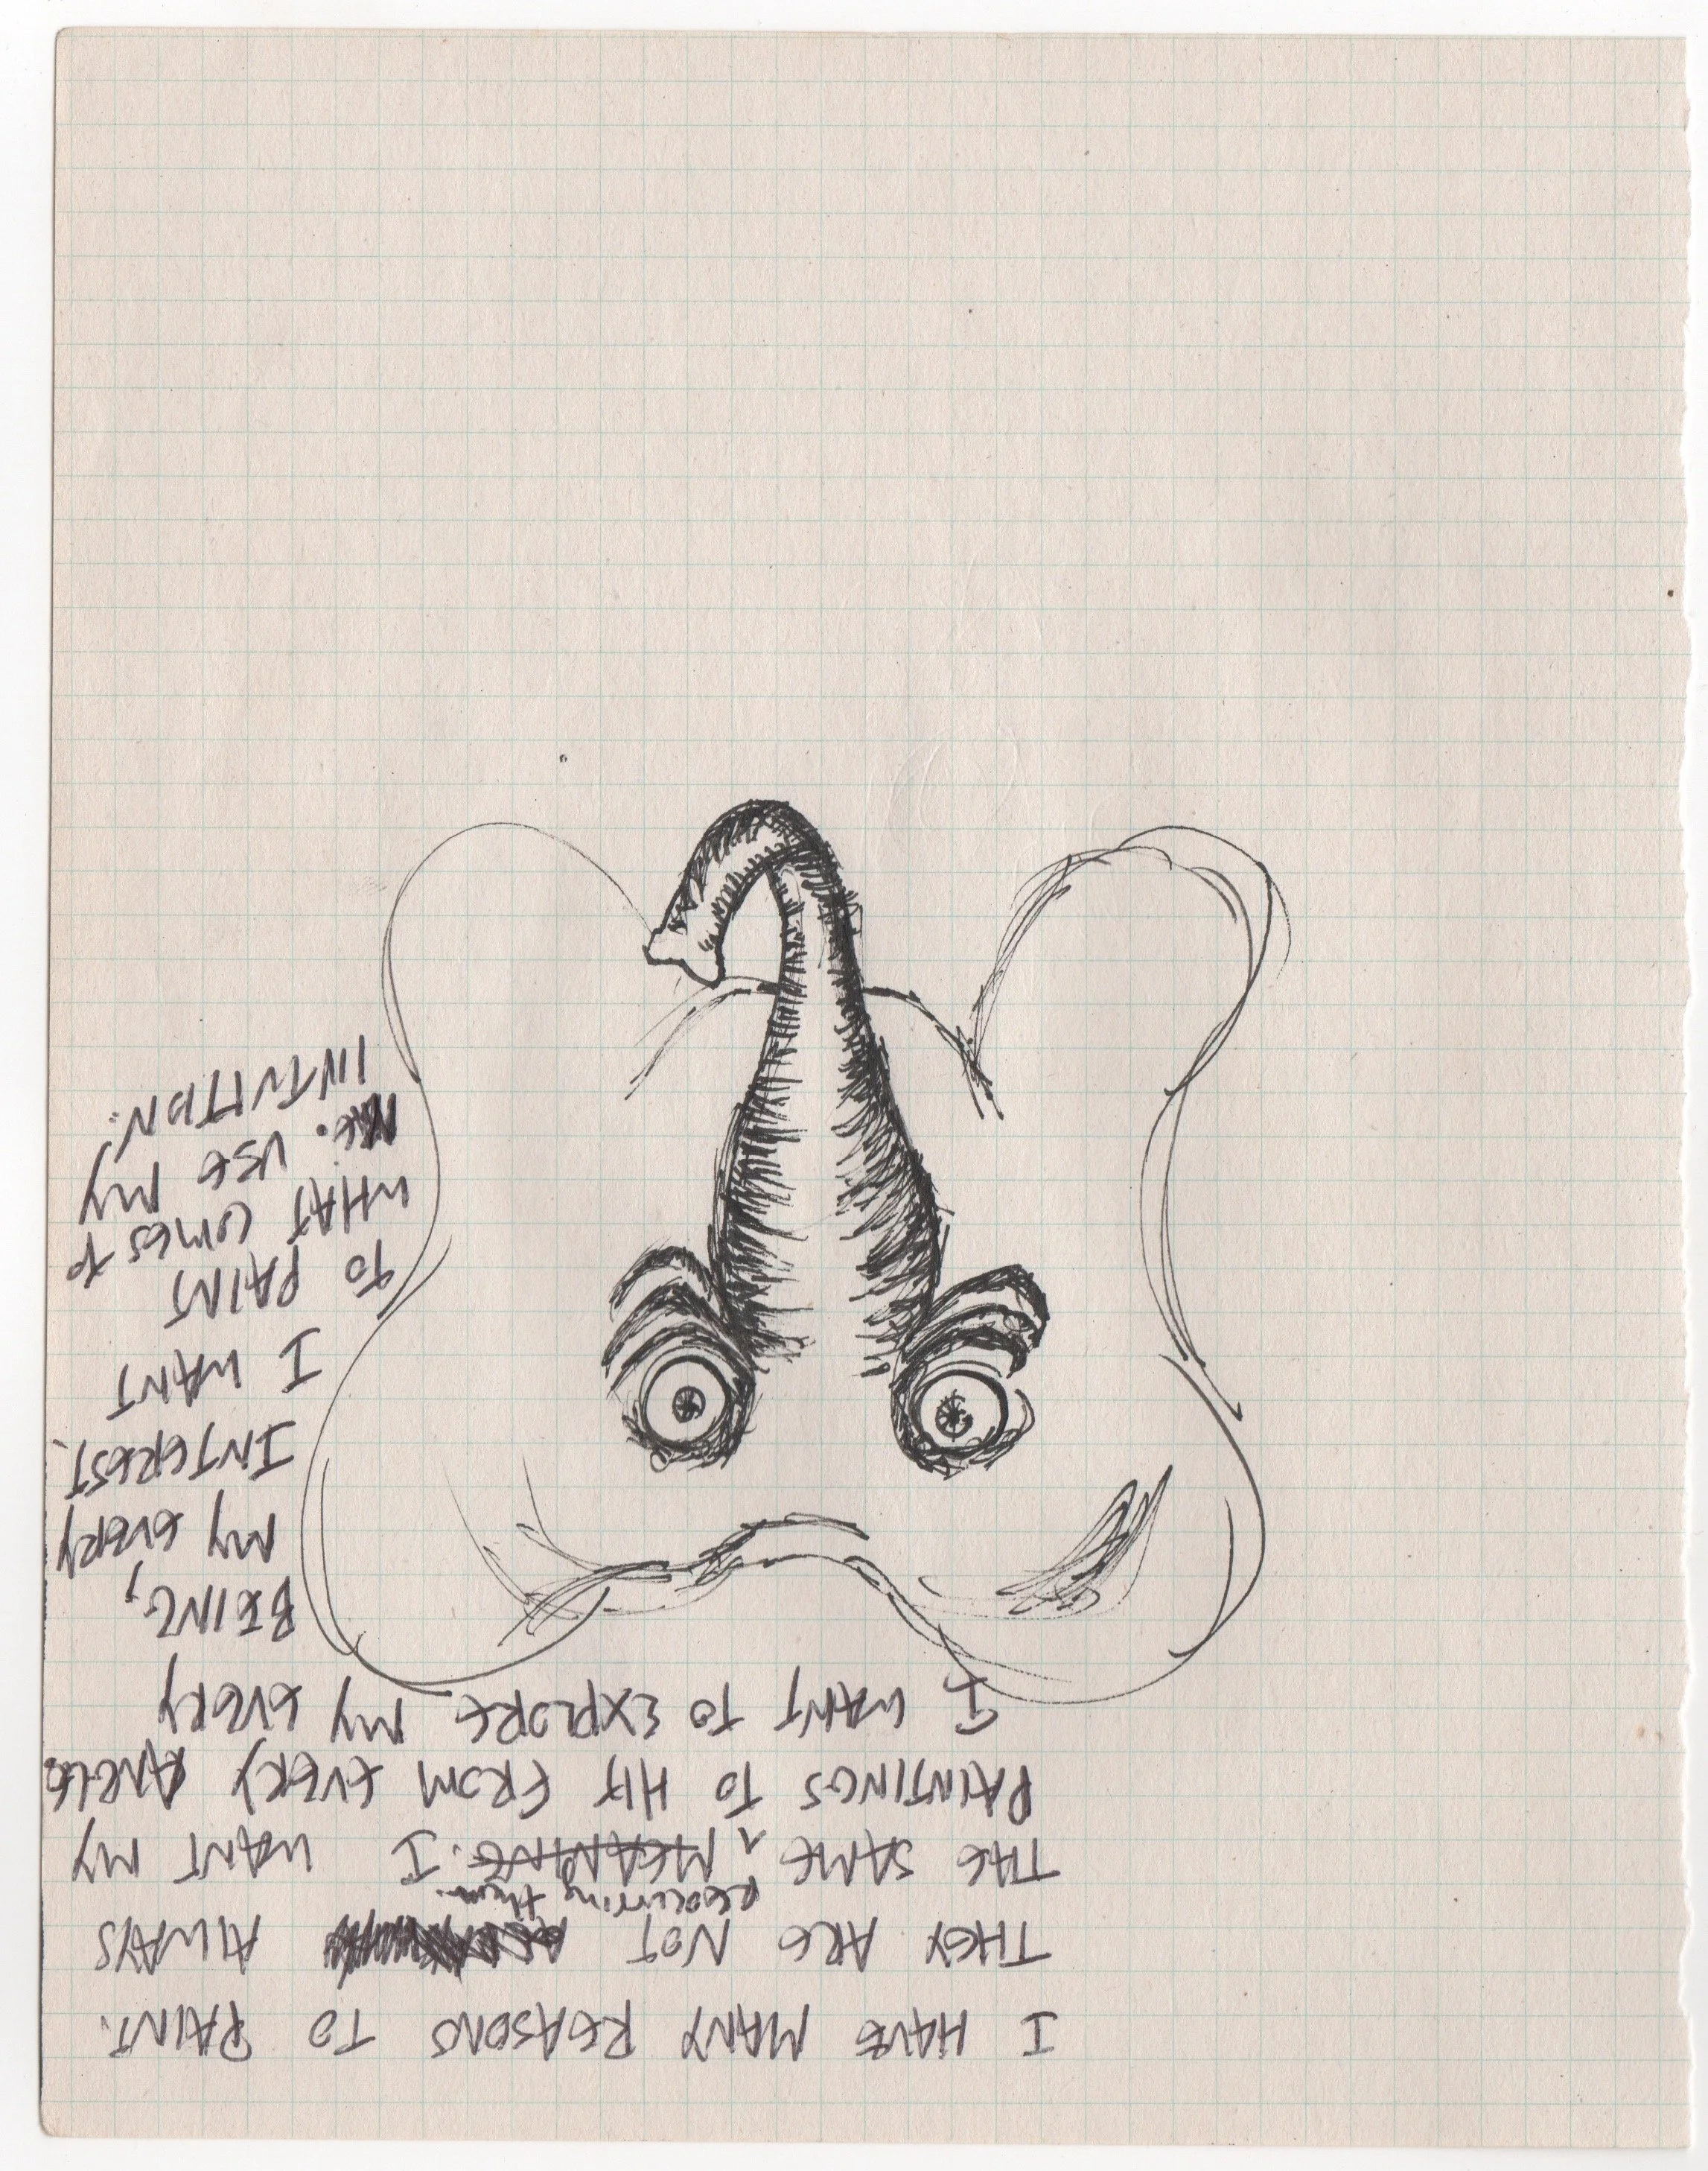 I HAVE MANY REASONS TO PAINT.
THEY ARE NOT ALWAYS
recurring them.
THE SAME ^ MEANING. I WANT MY
PAINTINGS TO HIT FROM EVERY ANGLE.
I WANT TO EXPLORE MY EVERY
BEING,
MY EVERY
INTEREST.
I WANT
TO PAINT
WHAT COMES TO
ME. USE MY
INTUITION.